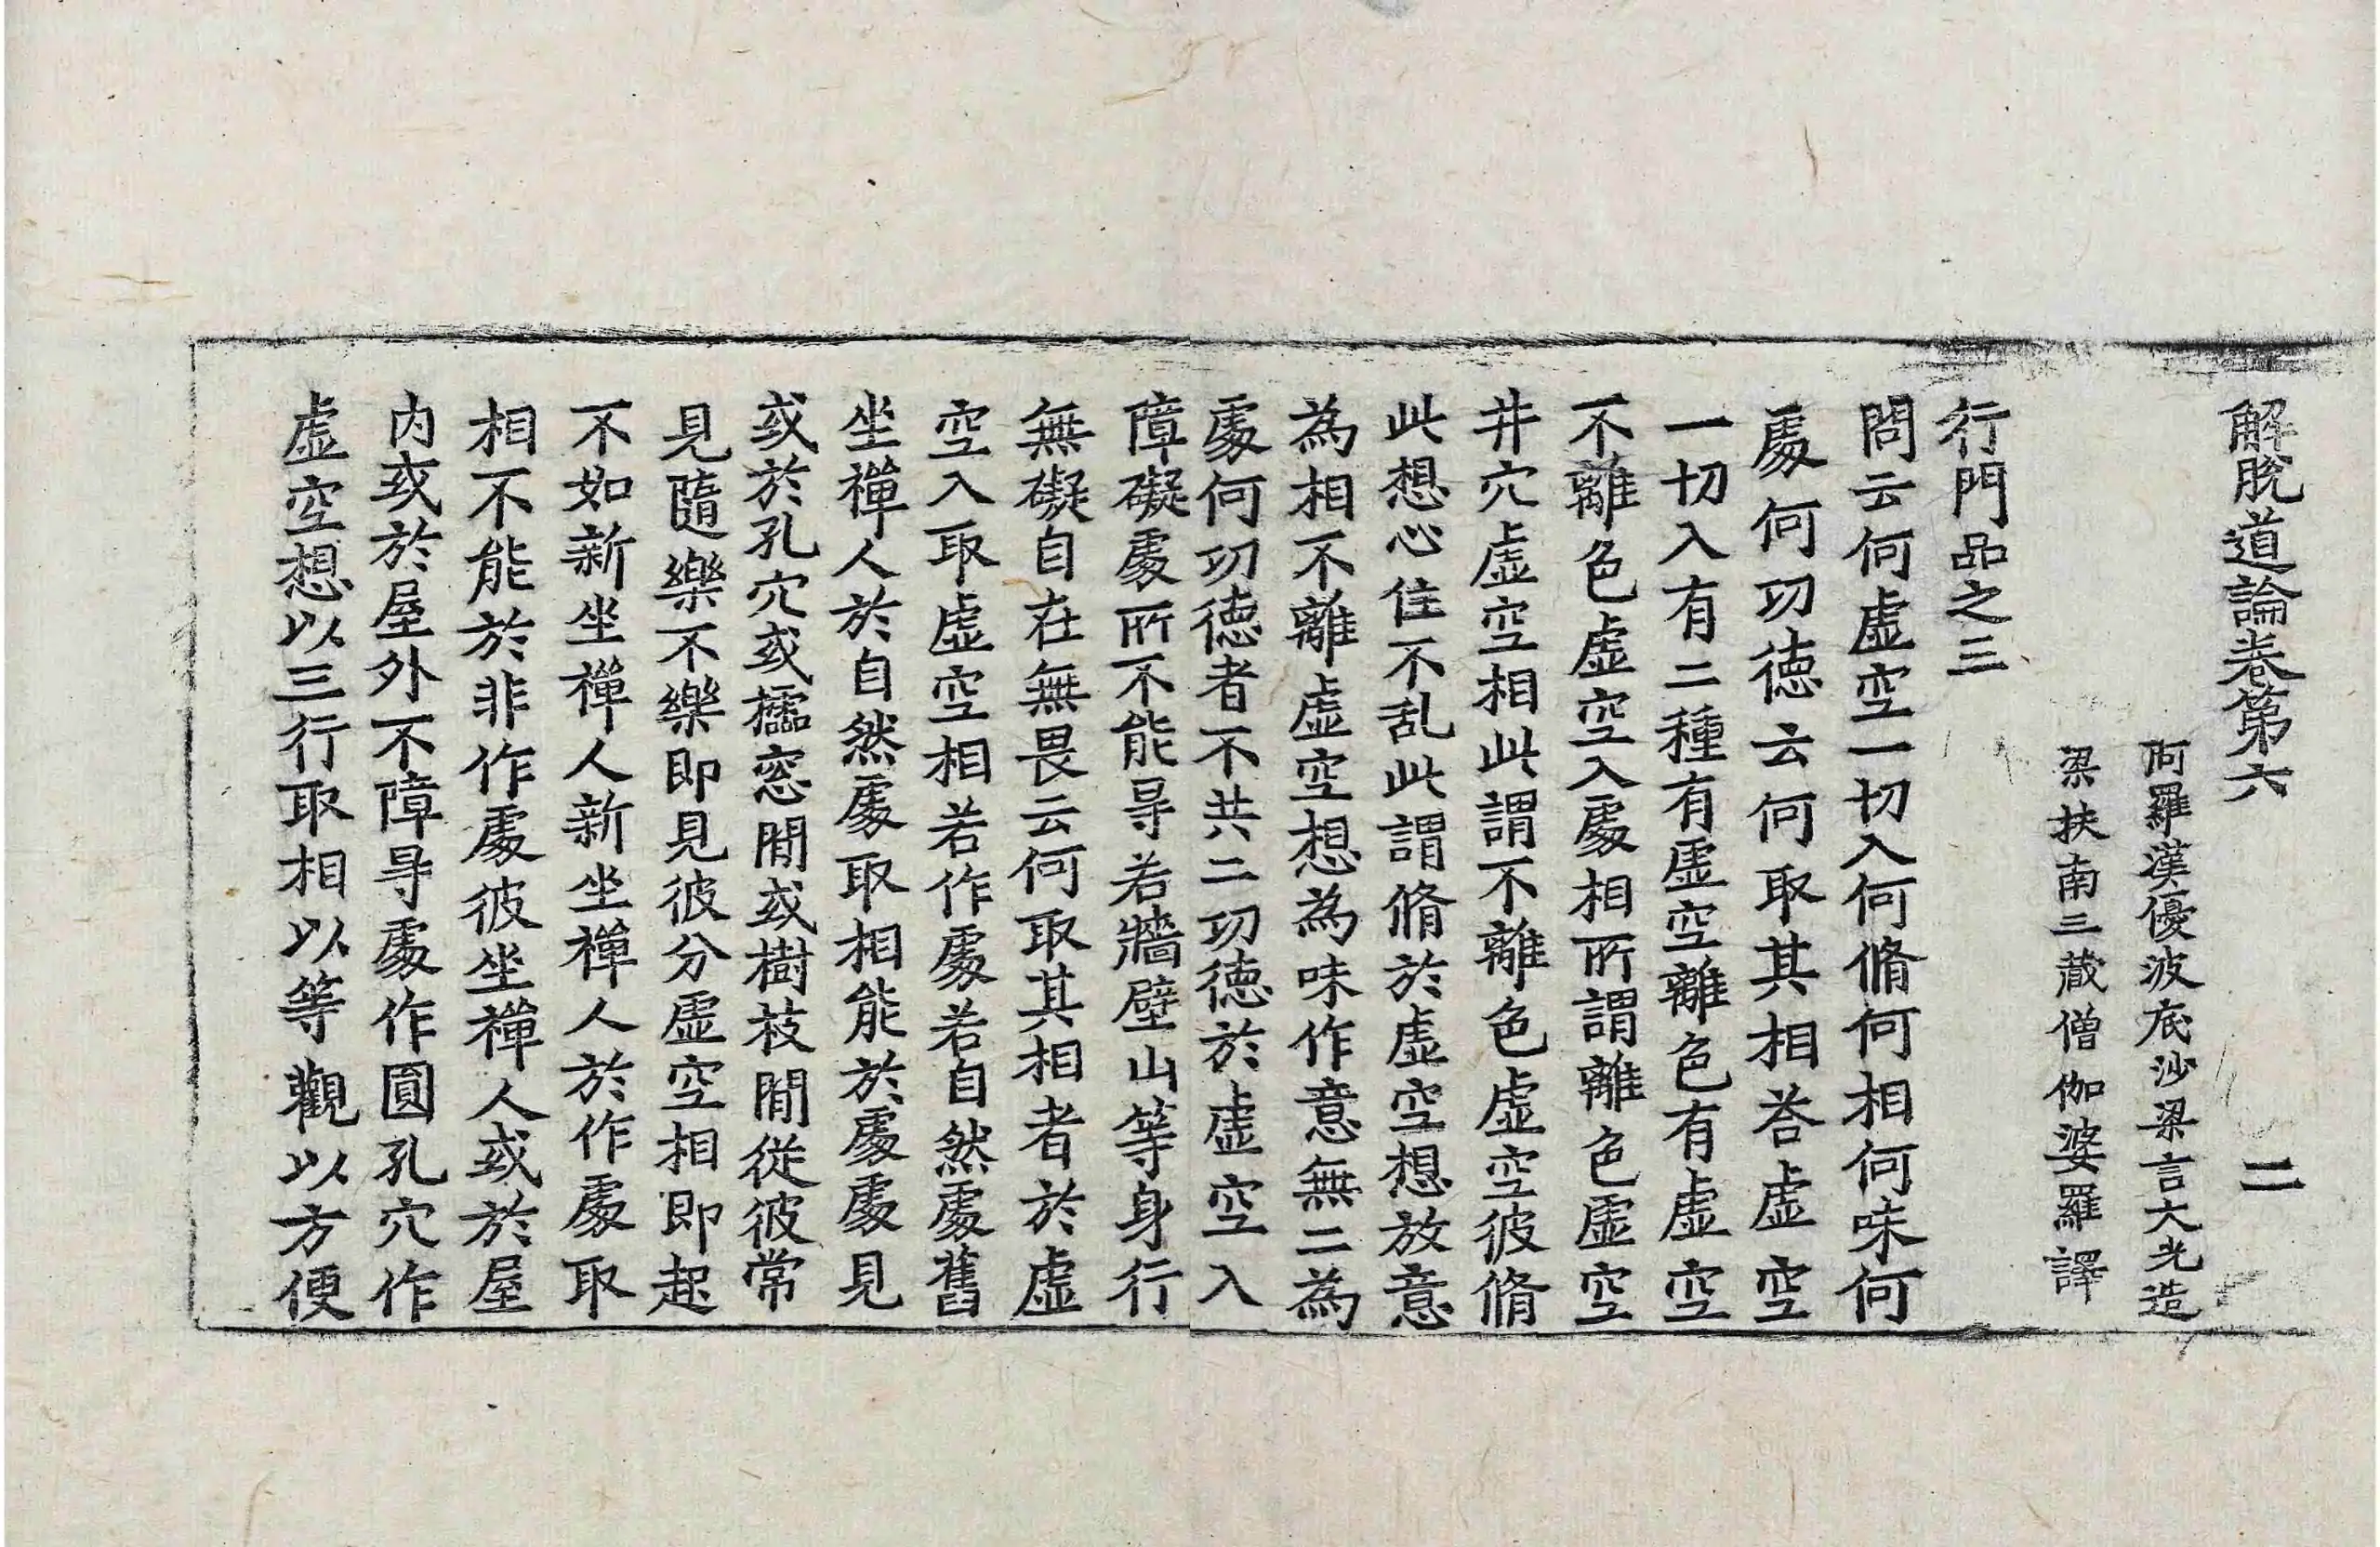 解脫道論卷第六 二
阿羅漢優波底沙梁言大光造
梁扶南三藏僧伽婆羅譯
行門品之三
問云何虛空一切入何脩何相何味何
處何功德云何取其相荅虛空
一切入有二種有虛空離色有虛空
不離色虛空入處相所謂離色虛空
井穴虛空相此謂不離色虛空彼脩
此想心住不乱此謂脩於虛空想放意
為相不離虛空想為味作意無二為
處何功德者不共二功德於虛空入
障礙處所不能㝵若牆壁山等身行
無礙自在無畏云何取其相者於虛
空入取虛空相若作處若自然處舊
坐禪人於自然處取相能於處處見
或於孔穴或攎窓間或樹枝間從彼常
見隨樂不樂即見彼分虛空相即起
不如新坐禪人新坐禪人於作處取
相不能於非作處彼坐禪人或於屋
內或於屋外不障㝵處作圓孔穴作
虛空想以三行取相以等觀以方便